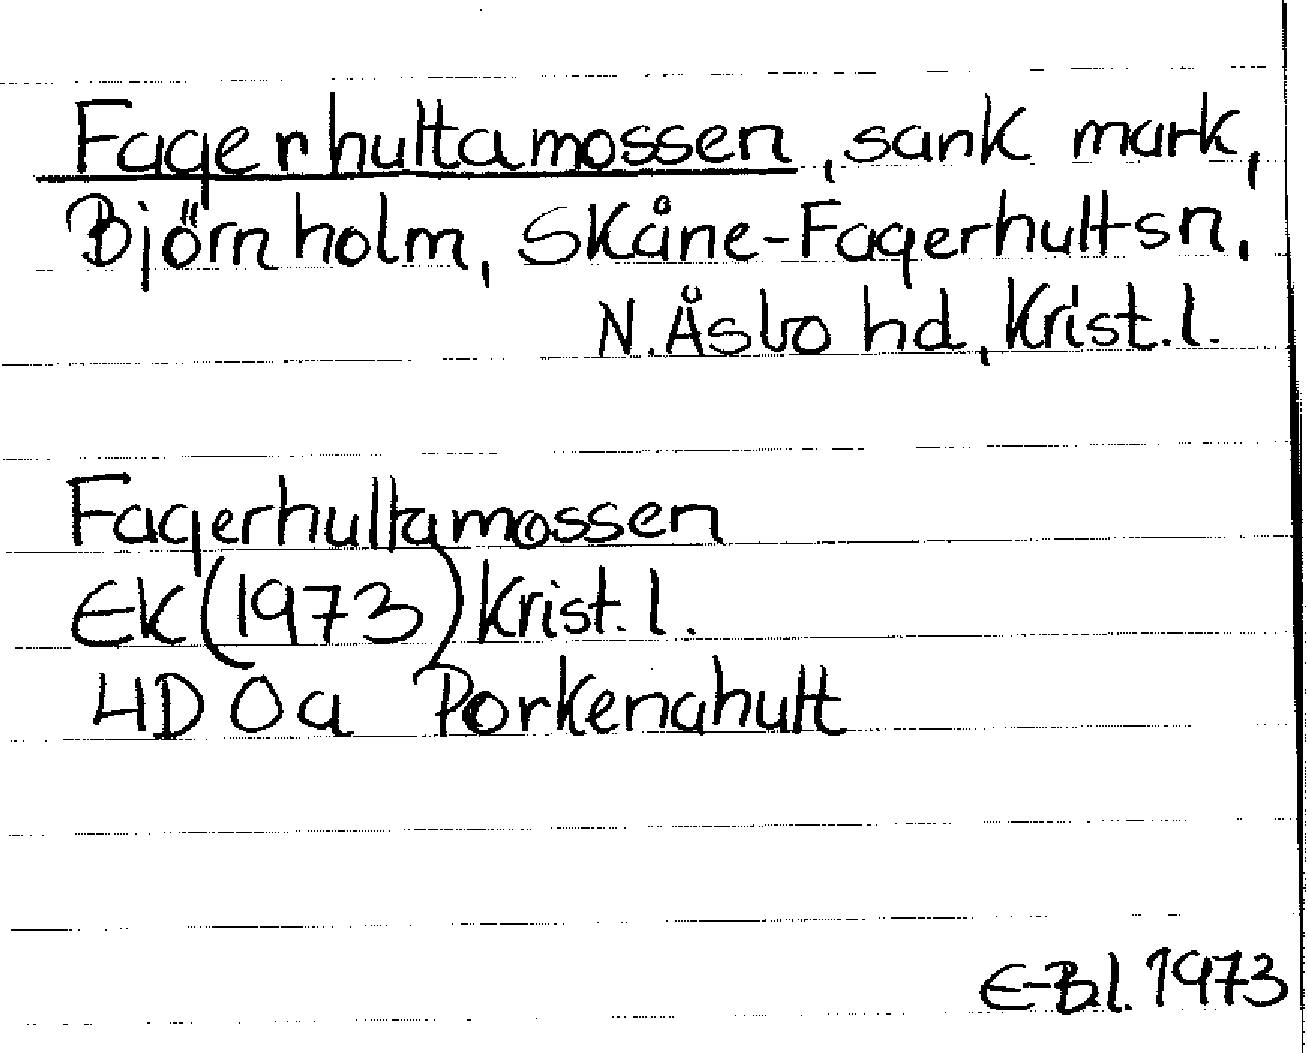 Fagerhultamossen, sank mark,
Björnholm, Skåne-Fagerhultsn,
N. Åsbo hd, Krist. l.
Fagerhultamossen
EK (1973) Krist. l.
4D 0a Porkenahult
E-Bl. 1973